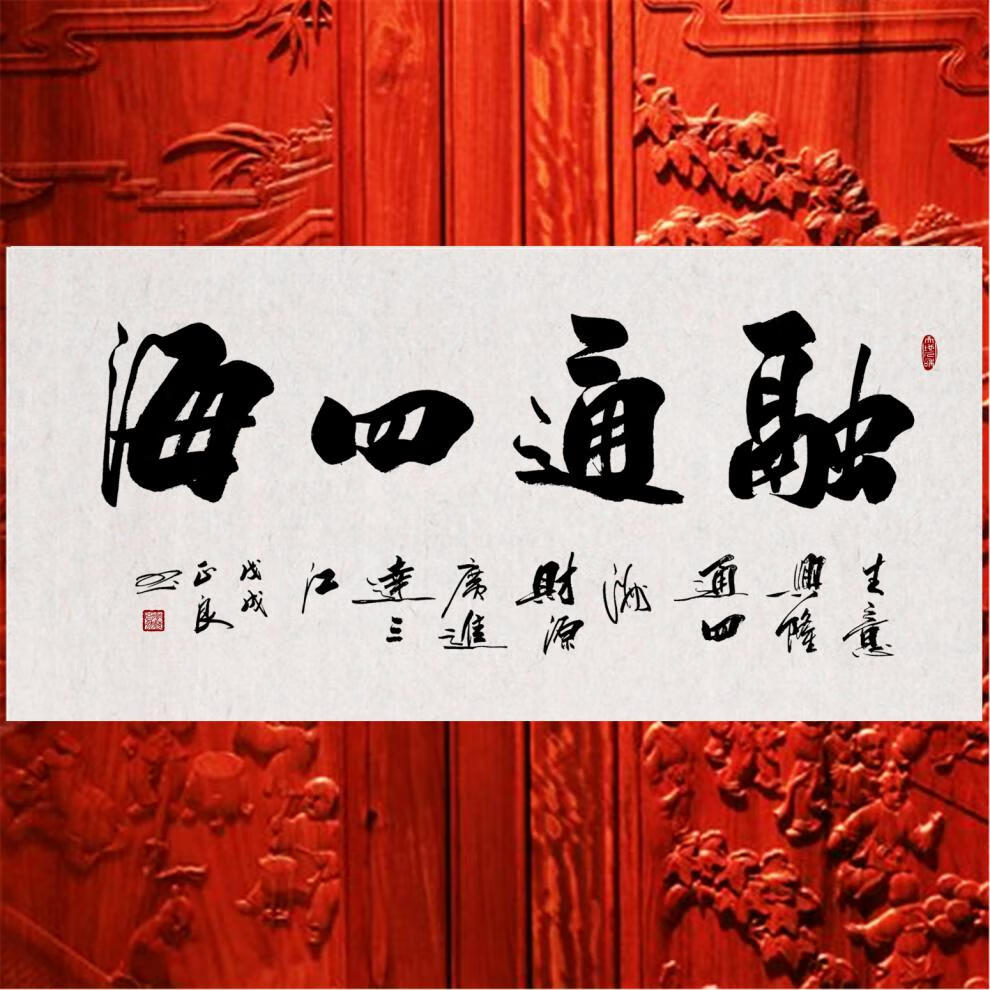 融通四海
生意
興隆
通四
海
財源
廣進
達三
江
戊戌
正良
书